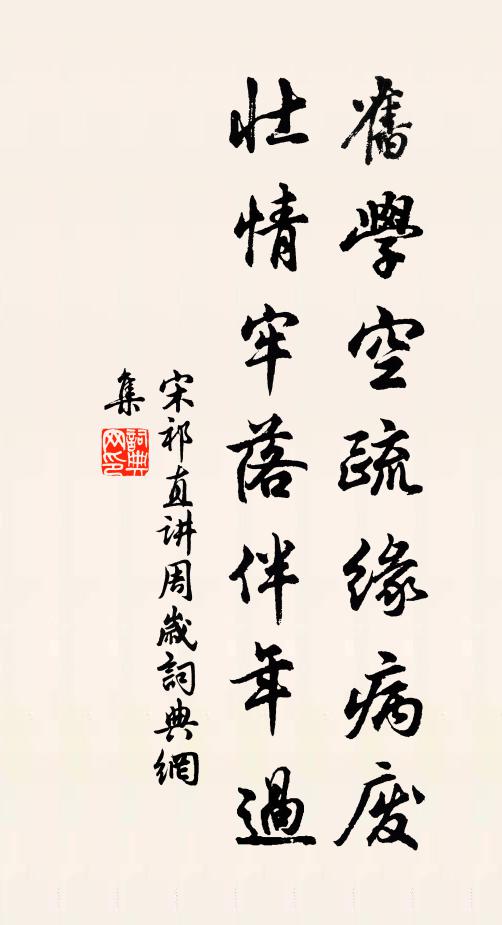 舊學空疏緣病廢
壯情牢落伴年過
宋祁直讲周歲詞典網
集
詞典網印